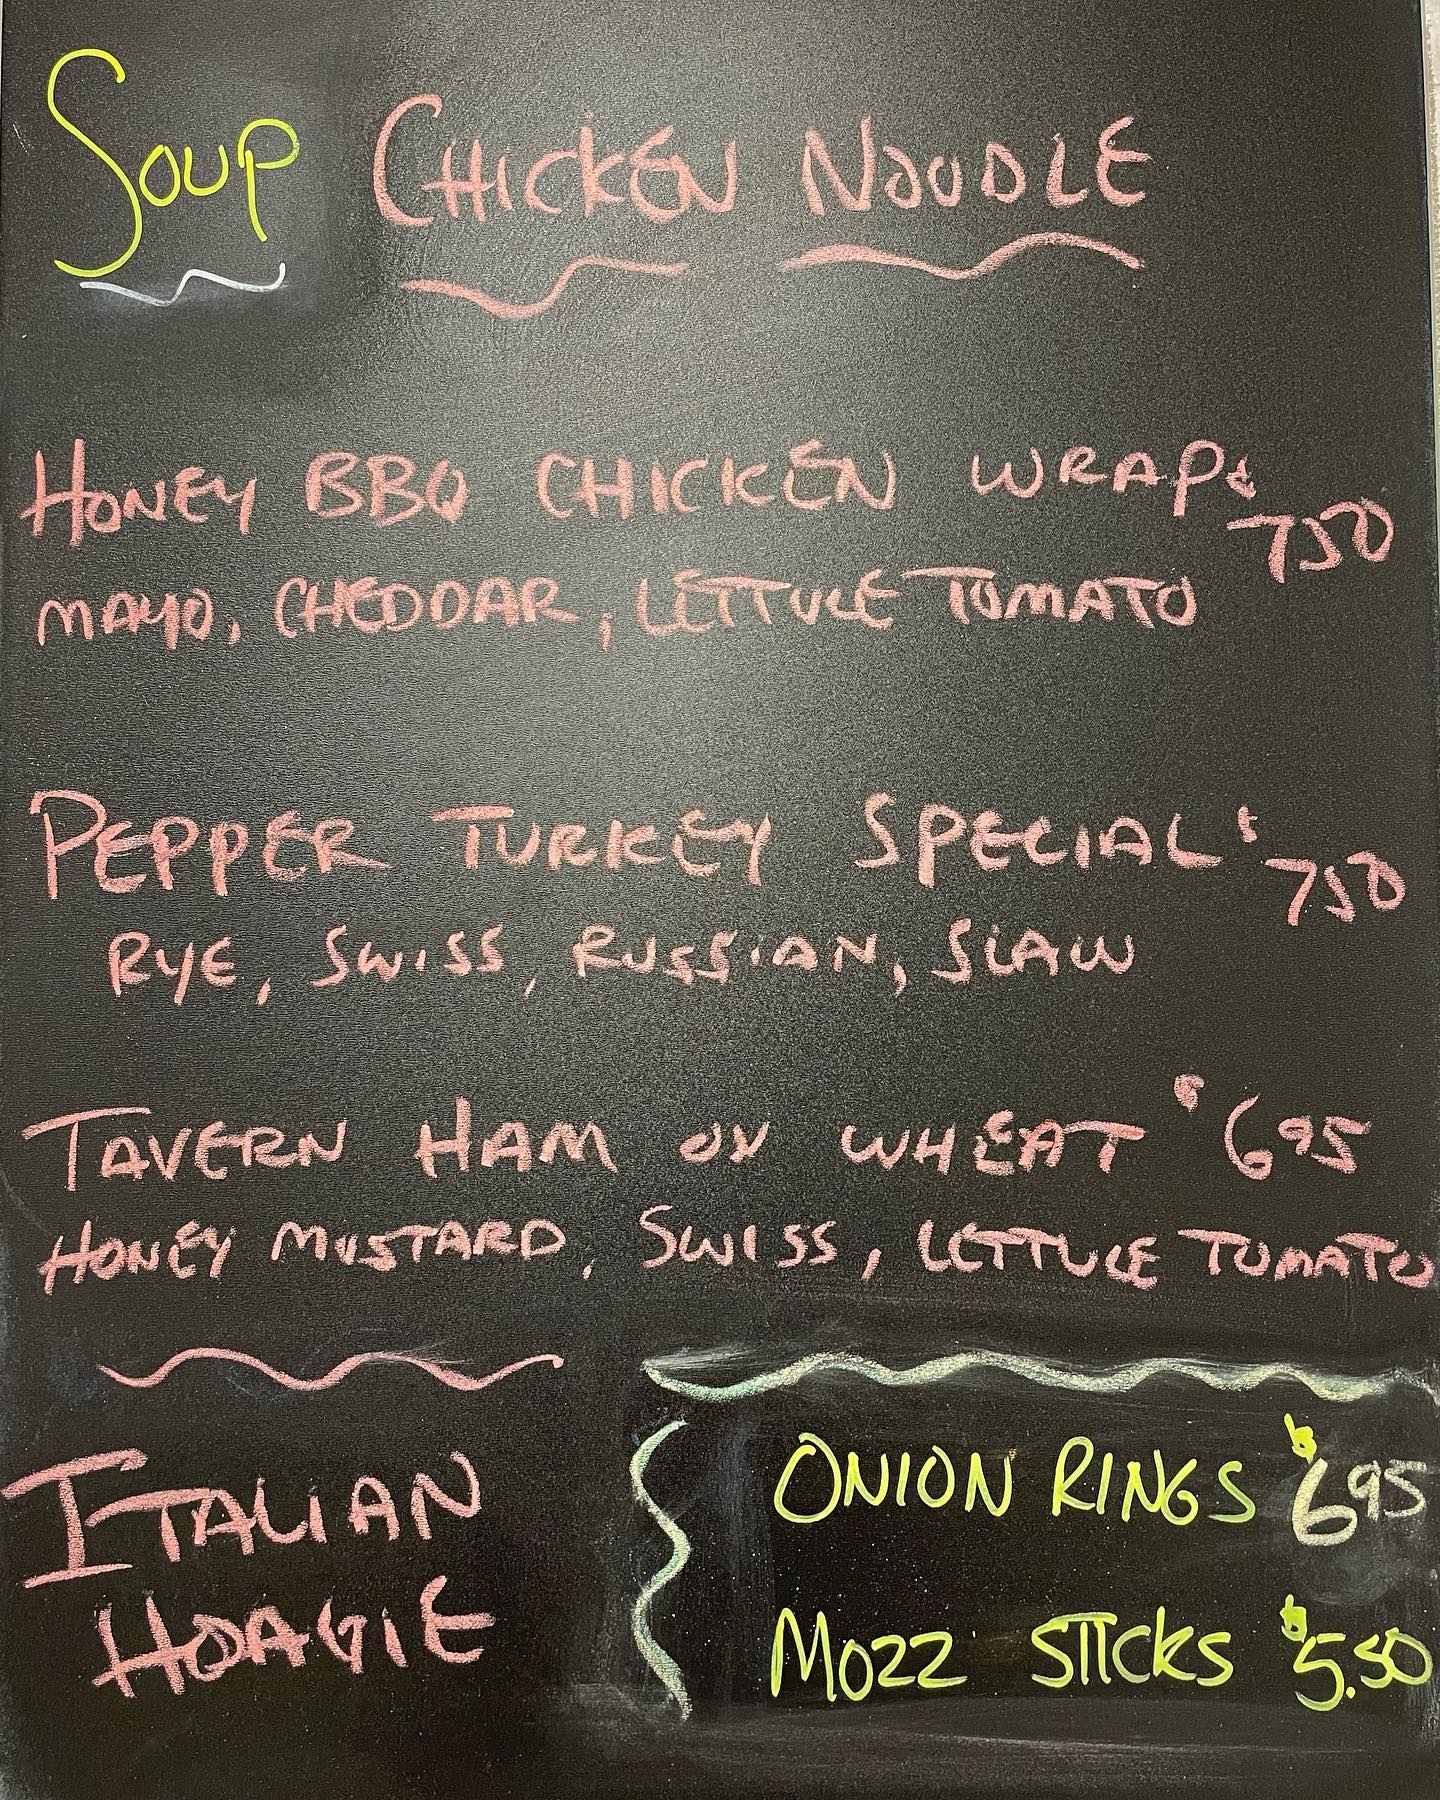 SOUP CHICKEN NOODLE
HONEY BBQ CHICKEN WRAP $750
MAYO, CHEDDAR, LETTUCE TOMATO
PEPPER TURKEY SPECIAL $750
RYE, SWISS, RUSSIAN, SLAW
TAVERN HAM ON WHEAT $695
HONEY MUSTARD, SWISS, LETTUCE TOMATO
ITALIAN
HOAGIE
ONION RINGS $695
MOZZ STICKS $5.50